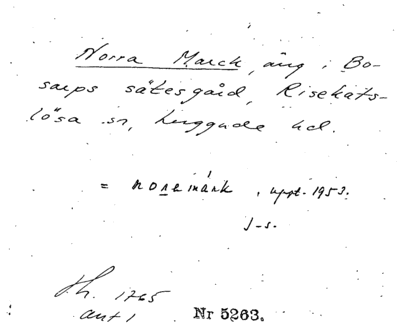 Norra Marck, äng i Bo-
sarps sätesgård, Risekats-
lösa sn, Luggude hd.
= noremárk, uppt. 1953.
J-s.
1765
Nr 5263.